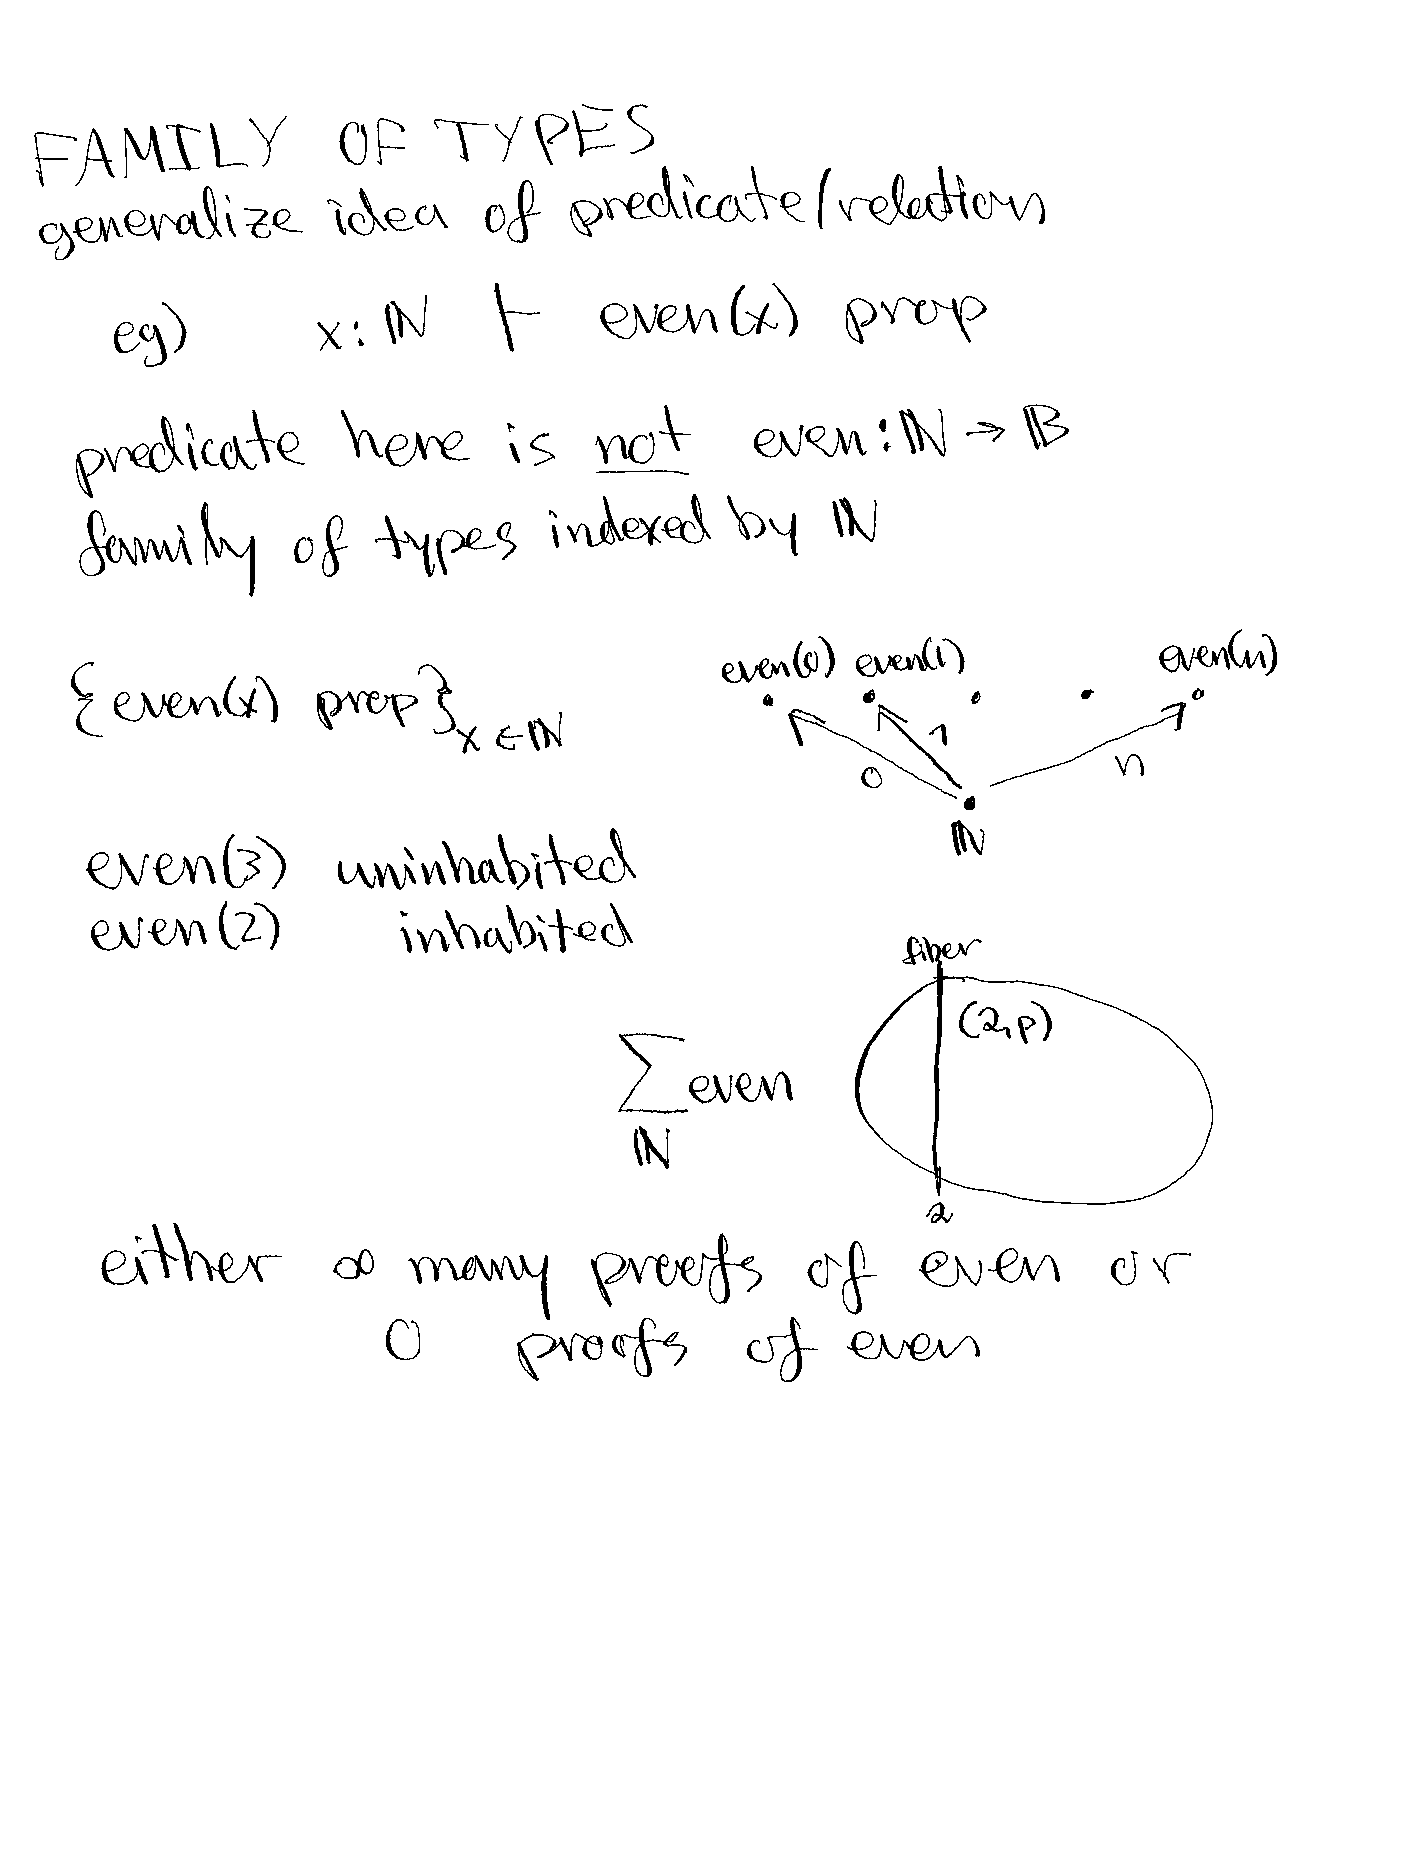 FAMILY OF TYPES
generalize idea of predicate/relation
eg) x:ℕ ⊢ even(x) prop
predicate here is not even:ℕ → 𝔹
family of types indexed by ℕ
even(0) even(1) even(n)
{even(x) prop}x∈ℕ
0 1 n
ℕ
even(3) uninhabited
even(2) inhabited
fiber
(2,p)
∑ even
ℕ
2
either ∞ many proofs of even or
0 proofs of even